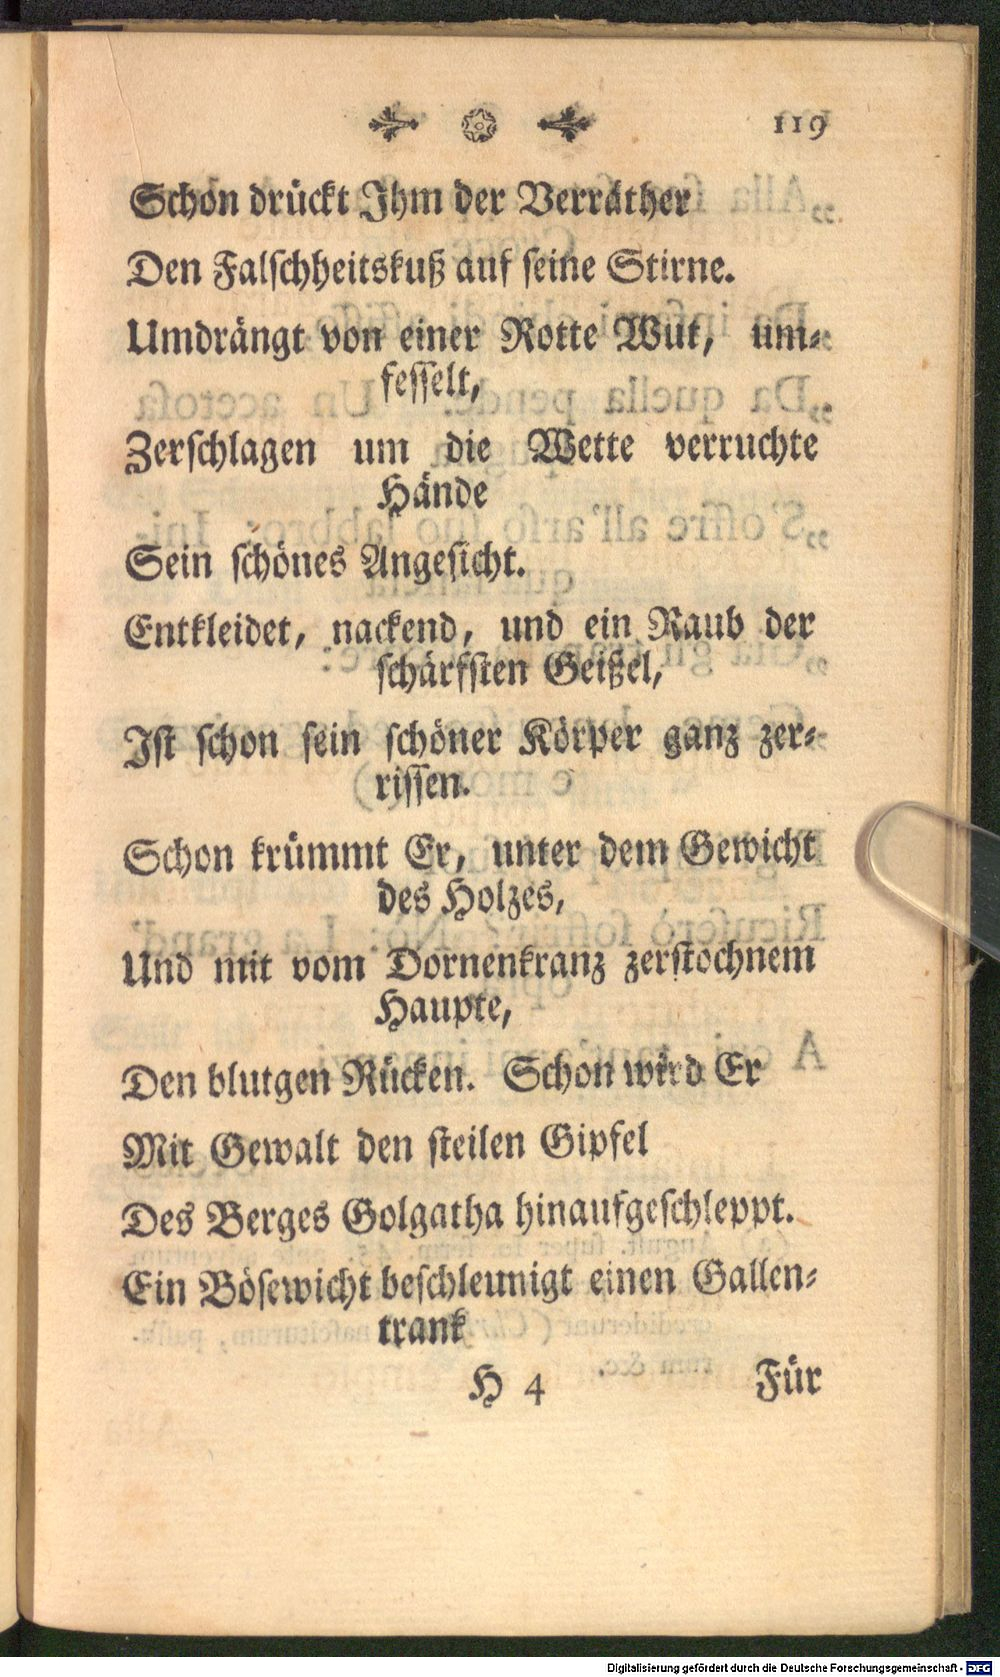 119
Schon drückt Ihm der Verräther
Den Falschheitskuß auf seine Stirne.
Umdrängt von einer Rotte Wut, um-
fesselt,
Zerschlagen um die Wette verruchte
Hände
Sein schönes Angesicht.
Entkleidet, nackend, und ein Raub der
schärfsten Geißel,
Ist schon sein schöner Körper ganz zer-
rissen.
Schon krümmt Er, unter dem Gewicht
des Holzes,
Und mit vom Dornenkranz zerstochnem
Haupte,
Den blutgen Rücken. Schon wird Er
Mit Gewalt den steilen Gipfel
Des Berges Golgatha hinaufgeschleppt.
Ein Bösewicht beschleunigt einen Gallen-
trank
H 4 Für
Digitalisierung gefördert durch die Deutsche Forschungsgemeinschaft - DFG